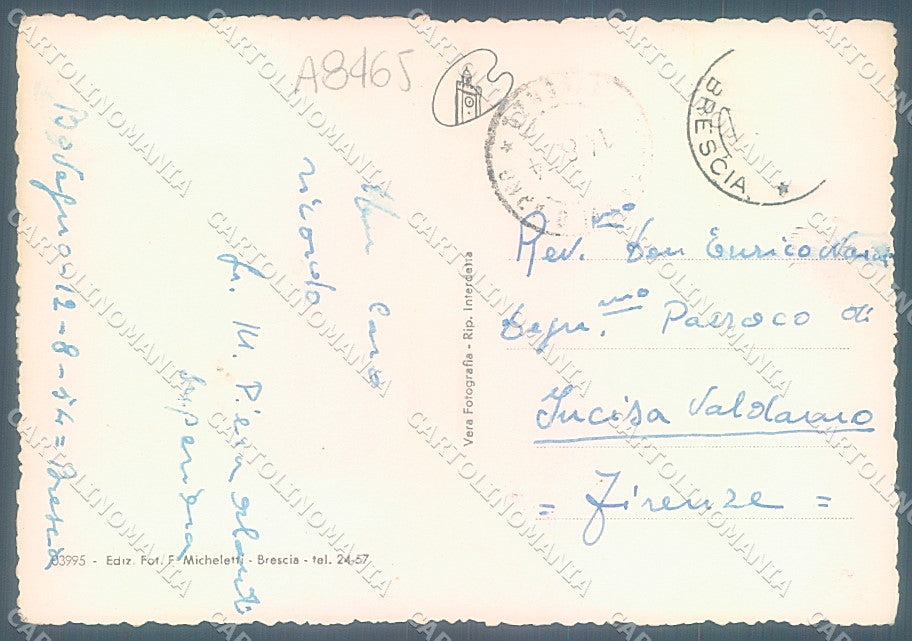 A8465
BRESCIA
Un caro
ricordo
Sr. M.
Superiora
12-8-54 = Brescia
Rev.mo Don Enrico
Degn.mo Parroco di
Incisa Valdarno
= Firenze =
Vera Fotografia - Rip. Interdetta
03995 - Ediz. Fot. F. Micheletti - Brescia - tel. 24-57
CARTOLINOMANIA